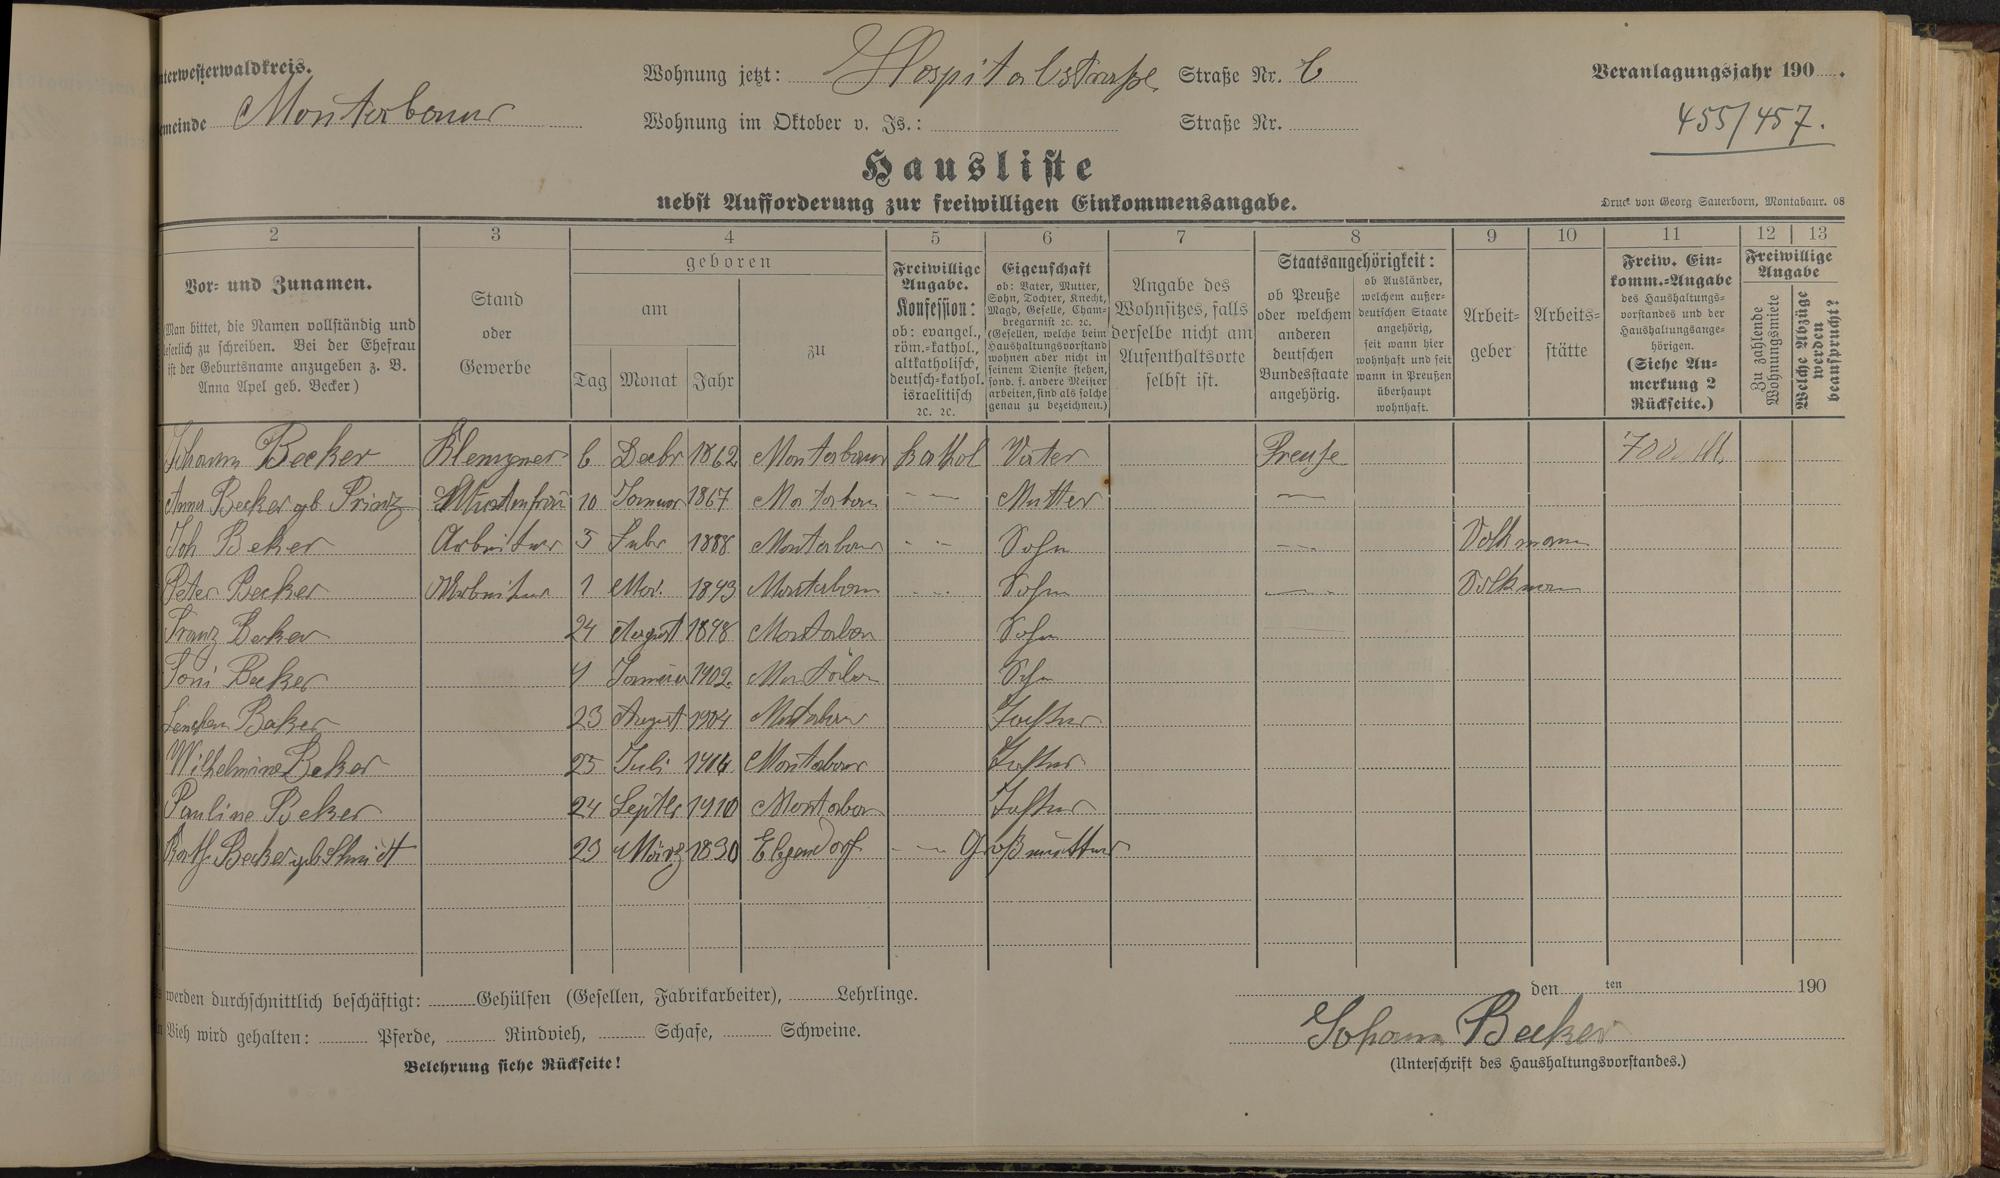 nterwesterwaldkreis.
Wohnung jetzt: Hospitalstraße Straße Nr. 6
Veranlagungsjahr 190 .
emeinde Montabaur
Wohnung im Oktober v. Js.: Straße Nr.
455/457.
Hausliste
nebst Aufforderung zur freiwilligen Einkommensangabe.
Druck von Georg Sauerborn, Montabaur. 08
2 3 4 5 6 7 8 9 10 11 12 13
Vor- und Zunamen.
(Man bittet, die Namen vollständig und
leserlich zu schreiben. Bei der Ehefrau
ist der Geburtsname anzugeben z. B.
Anna Apel geb. Becker)
Stand
oder
Gewerbe
geboren
am
Tag Monat Jahr
zu
Freiwillige
Angabe.
Konfession:
ob: evangel.,
röm.-kathol.,
altkatholisch,
deutsch-kathol.
israelitisch
2c. 2c.
Eigenschaft
ob: Vater, Mutter,
Sohn, Tochter, Knecht,
Magd, Geselle, Cham-
bregarnist 2c. 2c.
(Gesellen, welche beim
Haushaltungsvorstand
wohnen aber nicht in
seinem Dienste stehen,
sond. f. andere Meister
arbeiten, sind als solche
genau zu bezeichnen.)
Angabe des
Wohnsitzes, falls
derselbe nicht am
Aufenthaltsorte
selbst ist.
Staatsangehörigkeit:
ob Preuße
oder welchem
anderen
deutschen
Bundesstaate
angehörig.
ob Ausländer,
welchem außer-
deutschen Staate
angehörig,
seit wann hier
wohnhaft und seit
wann in Preußen
überhaupt
wohnhaft.
Arbeit-
geber
Arbeits-
stätte
Freiw. Ein-
komm.-Angabe
des Haushaltungs-
vorstandes und der
Haushaltungsange-
hörigen.
(Siehe An-
merkung 2
Rückseite.)
Freiwillige
Angabe
Zu zahlende
Wohnungsmiete
Welche Abzüge
werden
beansprucht?
Johann Becker Klempner 6 Decbr 1862 Montabaur kathol Vater Preuße 700 M.
Anna Becker gb Prinz 10 Januar 1867 Montabaur Mutter
Joh Beker Arbeiter 5 1888 Montabaur Sohn Volkmann
Peter Becker Arbeiter 1 Mai 1893 Montabaur Sohn Volkmann
Franz Becker 24 August 1898 Montabaur Sohn
Toni Becker 4 Januar 1902 Montabaur Sohn
Lenchen Beker 23 August 1904 Montabaur Tochter
Wilhelmine Beker 25 Juli Montabaur Tochter
Pauline Beker 24 Septbr 1910 Montabaur Tochter
Kath. Becker gb Schmidt 23 März 1830 Elgendorf Großmutter
werden durchschnittlich beschäftigt: Gehülfen (Gesellen, Fabrikarbeiter), Lehrlinge.
den ten 190
Vieh wird gehalten: Pferde, Rindvieh, Schafe, Schweine.
Johann Becker
Belehrung siehe Rückseite!
(Unterschrift des Haushaltungsvorstandes.)